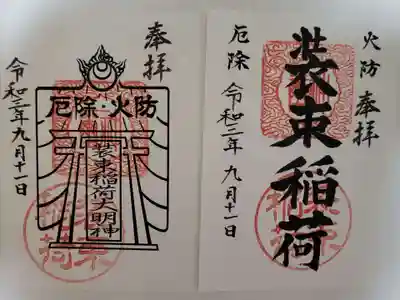 奉拝
厄除・火防
装束稲荷大明神
令和三年九月十一日
火防 奉拝
装束稲荷
厄除 令和二年九月十一日